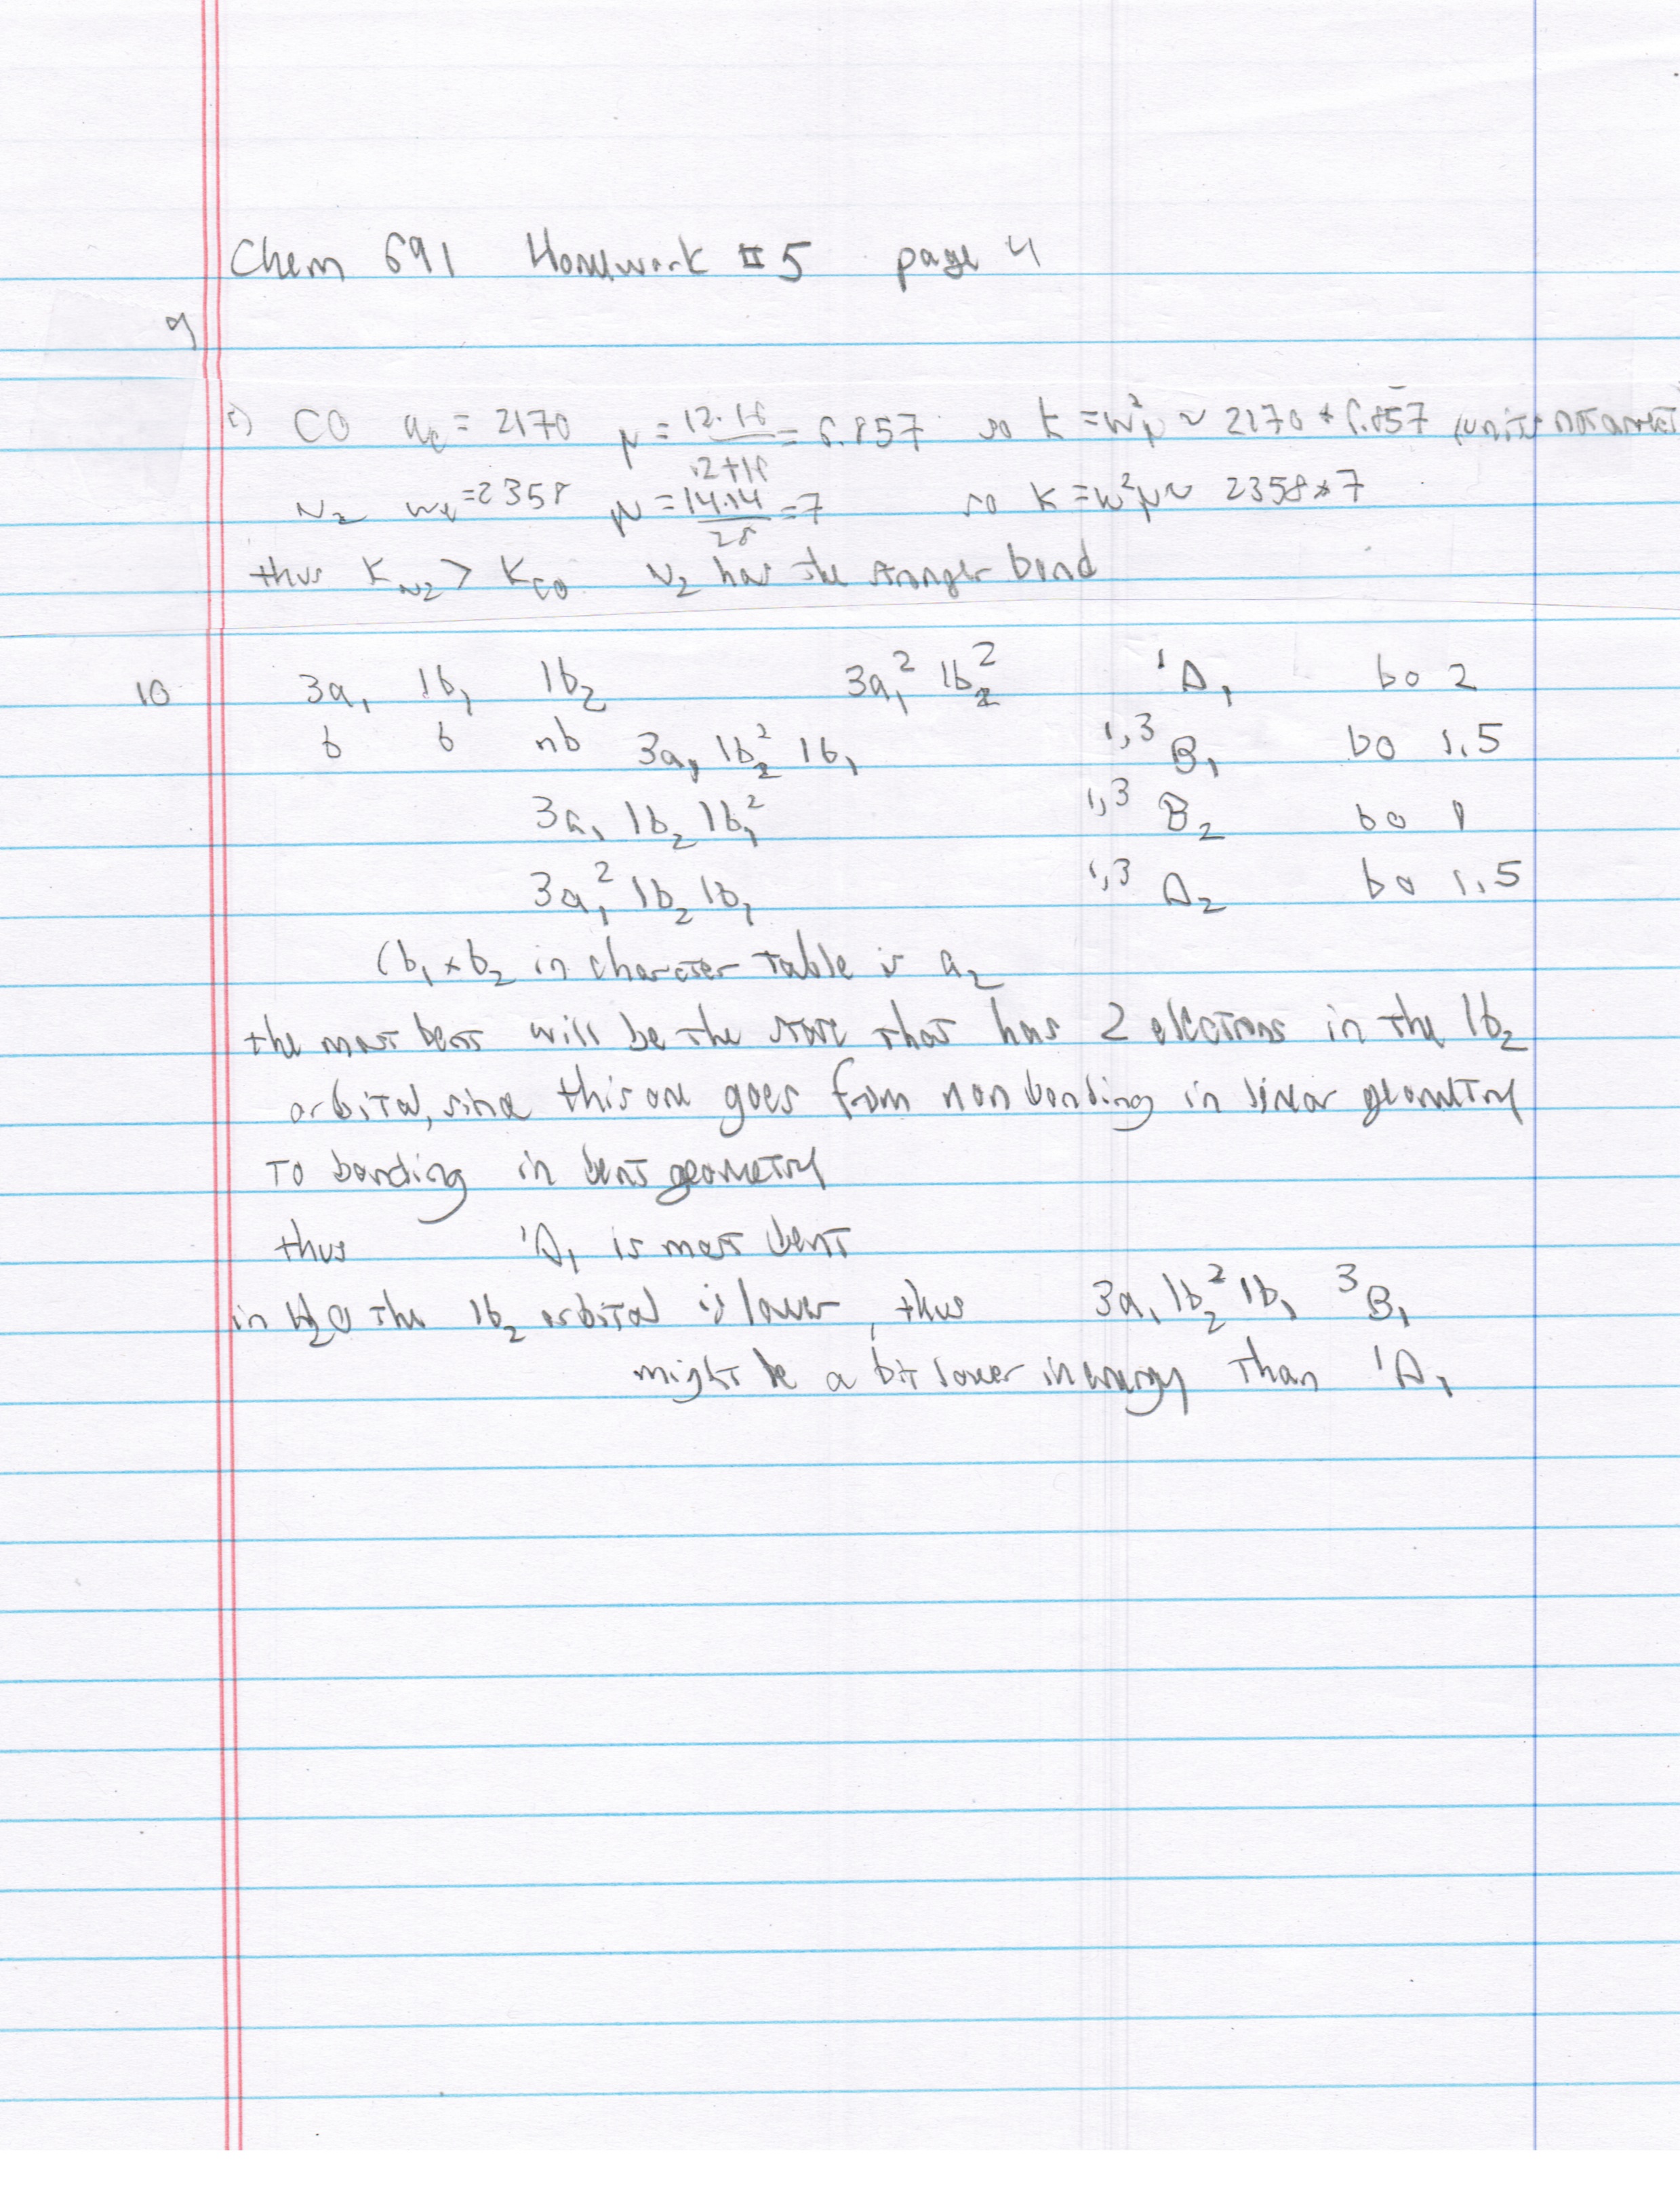 Chem 691 Homework #5 page 4
9
c) CO ωe = 2170 μ = 12·16/12+16 = 6.857 so k = w²μ ~ 2170 * 6.857 (units not
N2 we = 2358 μ = 14·14/28 = 7 so k = w²μ ~ 2358 * 7
thus KN2 > KCO N2 has the stronger bond
10 3a₁ 1b₁ 1b₂ 3a₁² 1b₂² ¹A₁ bo 2
b b nb 3a₁ 1b₂² 1b₁ ¹,³B₁ bo 1.5
3a₁ 1b₂ 1b₁² ¹,³B₂ bo 1
3a₁² 1b₂ 1b₁ ¹,³A₂ bo 1.5
(b₁ * b₂ in character table is a₂
the most bent will be the state that has 2 electrons in the 1b₂
orbital, since this one goes from non bonding in linear geometry
to bonding in bent geometry
thus ¹A₁ is most bent
in H₂O the 1b₂ orbital is lower, thus 3a₁ 1b₂² 1b₁ ³B₁
might be a bit lower in energy than ¹A₁